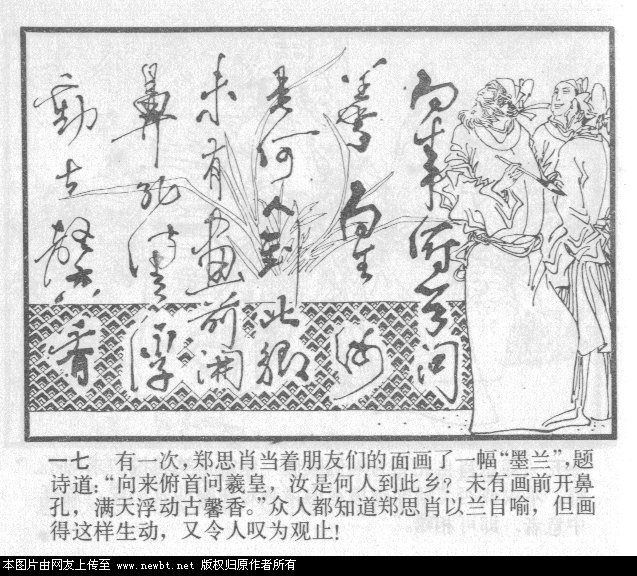 向来俯首问
羲皇汝
是何人到此鄉
未有畫前開
鼻孔滿天浮
動古馨香
一七 有一次，郑思肖当着朋友们的面画了一幅“墨兰”，题
诗道：“向来俯首问羲皇，汝是何人到此乡？未有画前开鼻
孔，满天浮动古馨香。”众人都知道郑思肖以兰自喻，但画
得这样生动，又令人叹为观止！
本图片由网友上传至 www.newbt.net 版权归原作者所有